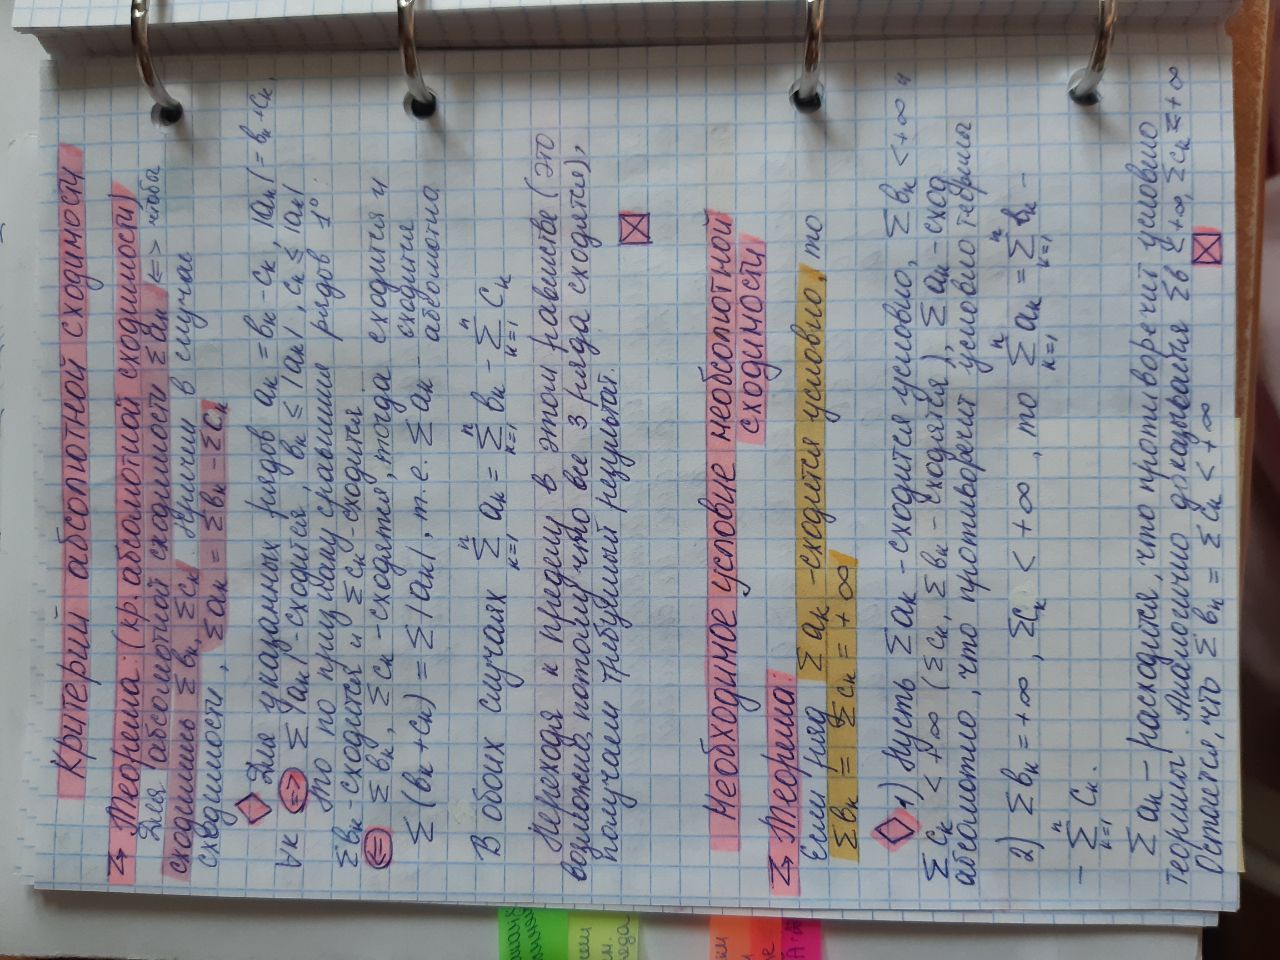 Критерий абсолютной сходимости
Теорема: (кр. абсолютной сходимости)
Для абсолютной сходимости Σaₖ <=> чтобы
сходились Σbₖ, Σcₖ. Причем в случае
сходимости, Σaₖ = Σbₖ - Σcₖ
Для указанных рядов aₖ = bₖ - cₖ, |aₖ| = bₖ + cₖ,
∀k => Σ|aₖ| - сходится, bₖ ≤ |aₖ|, cₖ ≤ |aₖ|
то по признаку сравнения рядов 1°
Σbₖ - сходится и Σcₖ - сходится
<= Σbₖ, Σcₖ - сходятся, тогда сходится и
Σ(bₖ + cₖ) = Σ|aₖ|, т.е. Σaₖ - сходится
абсолютно.
В обоих случаях Σⁿₖ₌₁ aₖ = Σⁿₖ₌₁ bₖ - Σⁿₖ₌₁ cₖ
Переходя к пределу в этом равенстве (это
возможно, потому что все 3 ряда сходятся),
получаем требуемый результат.
Необходимое условие необсолютной
сходимости
Теорема:
Если ряд Σaₖ - сходится условно, то
Σbₖ = Σcₖ = +∞
1) Пусть Σaₖ - сходится условно, Σbₖ < +∞ и
Σcₖ < +∞ (Σcₖ, Σbₖ - сходятся), Σaₖ - сход
абсолютно, что противоречит условию теоремы
2) Σbₖ = +∞, Σcₖ < +∞, то Σⁿₖ₌₁ aₖ = Σⁿₖ₌₁ bₖ -
- Σⁿₖ₌₁ cₖ.
Σaₖ - расходится, что противоречит условию
теоремы. Аналогично доказывается Σb < +∞, Σcₖ = +∞
Остается, что Σbₖ = Σcₖ < +∞